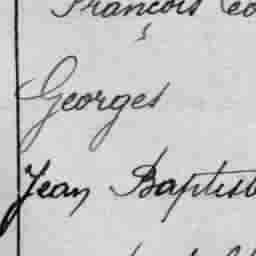 François
Georges
Jean Baptist